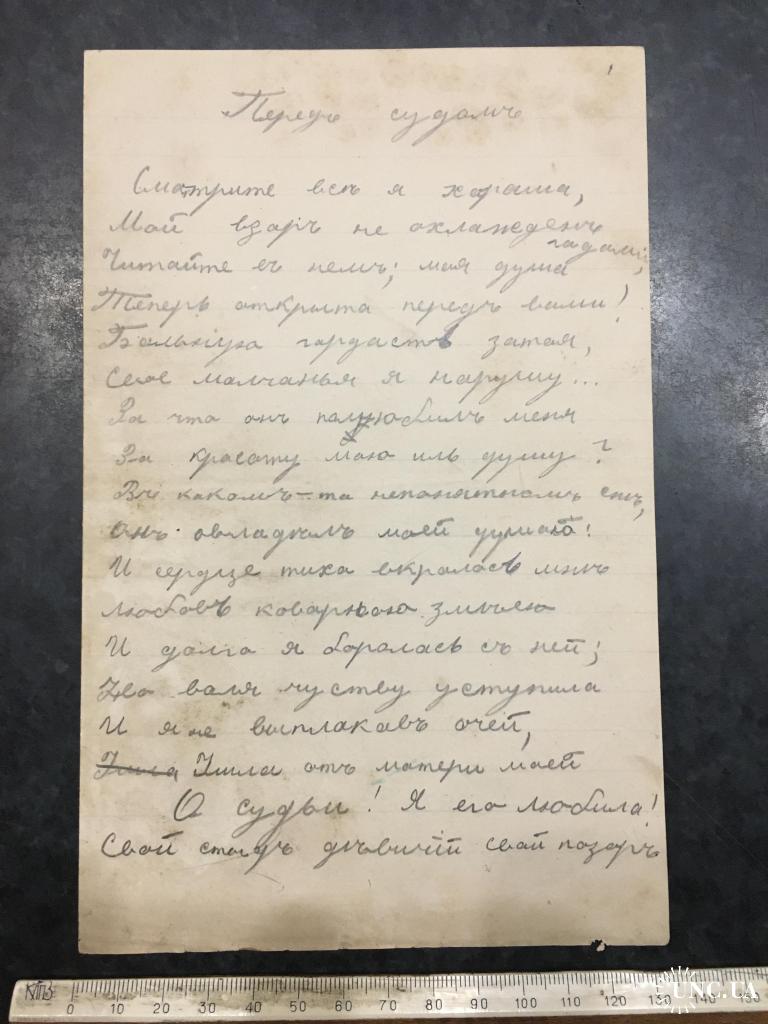 Передъ судомъ
Сматрите всѣ я хараша,
Мой взоръ не охлажденъ
гадами,
Читайте въ немъ; мая душа
Теперь открыта передъ вами!
гардасть затая,
Свое малчанья я нарушу...
За что онъ полюбилъ меня
За красоту маю иль душу?
Въ какомъ-та непонятномъ снѣ,
Онъ овладѣлъ моей душою!
И сердце тиха вкралась мнѣ
Любовь коварною змѣею
И долго я боралась съ ней;
Но валя чуству уступила
И я не выплакавъ очей,
Ушла Ушла отъ матери моей
О судьи! Я его любила!
Свой стыдъ дѣвичій свой позоръ
КТПЗ
0 10 20 30 40 50 60 70 80 90 100 110 120 130 150
UNC.UA